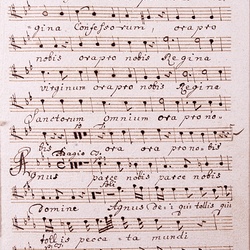 gina Confessorum, ora pro
nobis ora pro nobis Regina
virginum ora pro nobis Regina
Sanctorum omnium ora pro no-
bis ora ora pro no bis
Adagio
Agnus parce nobis parce nobis
Domine Agnus De i qui tollis qui
tollis pecca-ta mundi